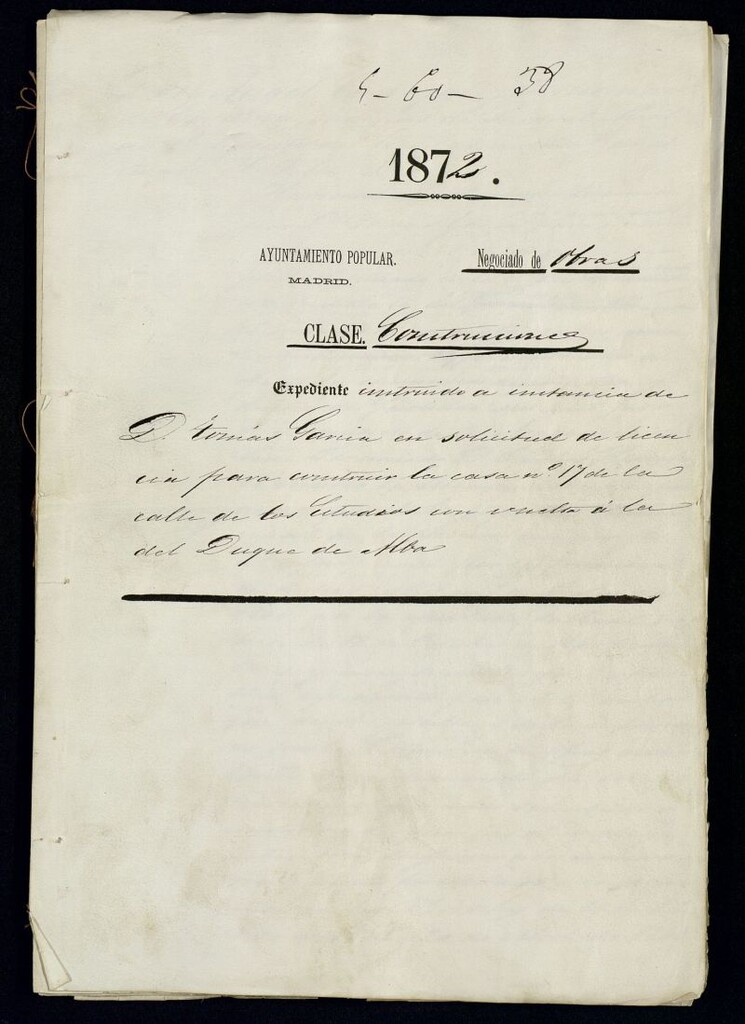 5-60-38
1872.
AYUNTAMIENTO POPULAR.
MADRID.
Negociado de Obras
CLASE. Construcciones
Expediente instruido a instancia de
D. Tomás Garcia en solicitud de licen
cia para construir la casa nº. 17 de la
calle de los Estudios con vuelta á la
del Duque de Alba